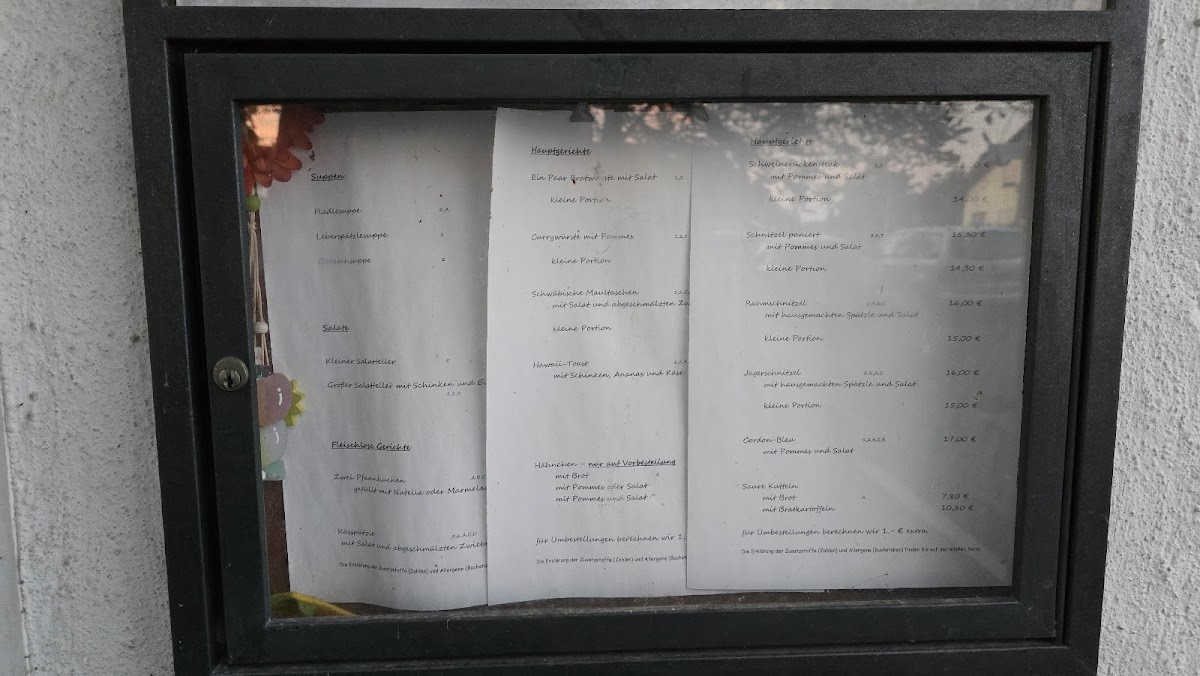 Suppen
Flädlesuppe 2,A
Leberspätzlesuppe 2
Gulaschsuppe 2
Salate
Kleiner Salatteller 2
Großer Salatteller mit Schinken und Ei
Fleischlose Gerichte
Zwei Pfannkuchen
gefüllt mit Nutella oder Marmelad
Kässpätzle
mit Salat und abgeschmälzten Zwiebe
Die Erklärung der Zusatzstoffe (Zahlen) und Allergene (Buchsta
Hauptgerichte
Ein Paar Bratwürste mit Salat 1,2
kleine Portion
Currywürste mit Pommes 1,2,3
kleine Portion
Schwäbische Maultaschen
mit Salat und abgeschmälzten Zw
kleine Portion
Hawaii-Toast
mit Schinken, Ananas und Käse
Hähnchen – nur auf Vorbestellung
mit Brot A
mit Pommes oder Salat
mit Pommes und Salat
für Umbestellungen berechnen wir 1,
Die Erklärung der Zusatzstoffe (Zahlen) und Allergene (Buchst
Hauptgerichte
Schweinerückensteak
mit Pommes und Salat
kleine Portion 14,00 €
Schnitzel paniert 15,50 €
mit Pommes und Salat
kleine Portion 14,50 €
Rahmschnitzel 16,00 €
mit hausgemachten Spätzle und Salat
kleine Portion 15,00 €
Jägerschnitzel 16,00 €
mit hausgemachten Spätzle und Salat
kleine Portion 15,00 €
Cordon-Bleu 17,00 €
mit Pommes und Salat
Saure Kutteln
mit Brot A 7,80 €
mit Bratkartoffeln 10,80 €
für Umbestellungen berechnen wir 1,- € extra
Die Erklärung der Zusatzstoffe (Zahlen) und Allergene (Buchstaben) finden Sie auf der letzten Seite.